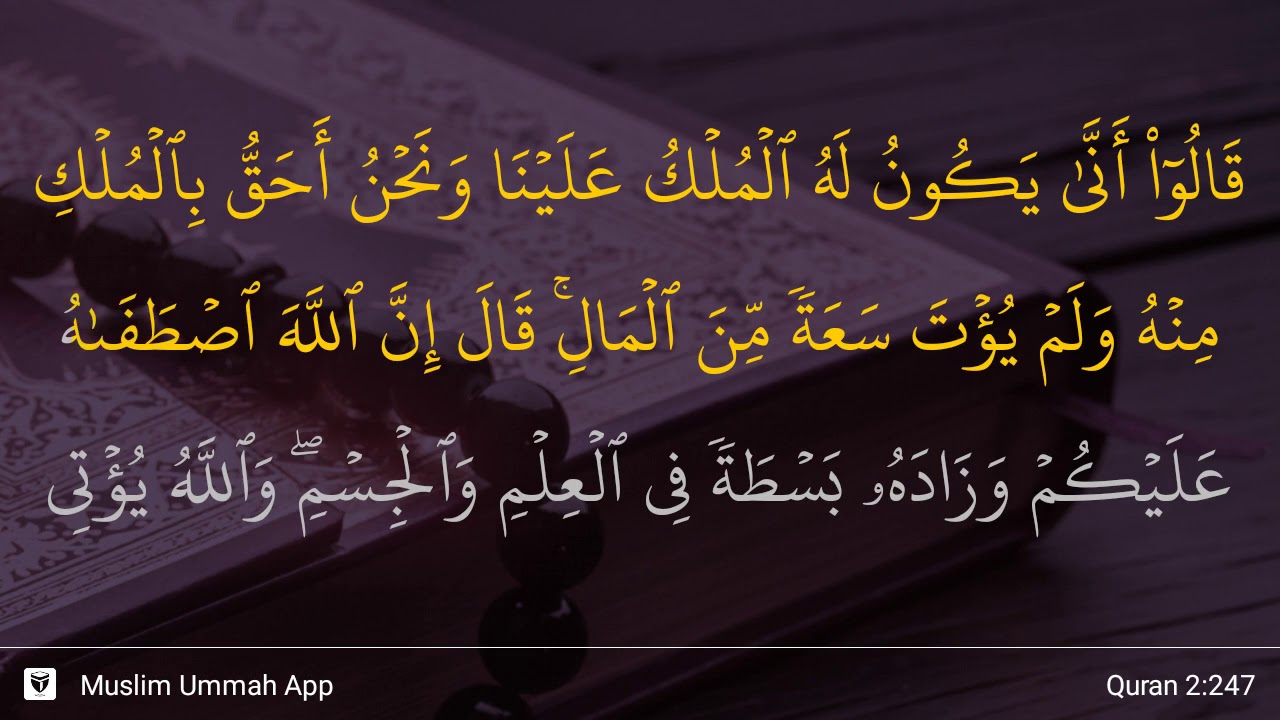 قَالُوٓا۟ أَنَّىٰ يَكُونُ لَهُ ٱلْمُلْكُ عَلَيْنَا وَنَحْنُ أَحَقُّ بِٱلْمُلْكِ
مِنْهُ وَلَمْ يُؤْتَ سَعَةً مِّنَ ٱلْمَالِ ۚ قَالَ إِنَّ ٱللَّهَ ٱصْطَفَىٰهُ
عَلَيْكُمْ وَزَادَهُۥ بَسْطَةً فِى ٱلْعِلْمِ وَٱلْجِسْمِ ۖ وَٱللَّهُ يُؤْتِى
Muslim Ummah App
Quran 2:247